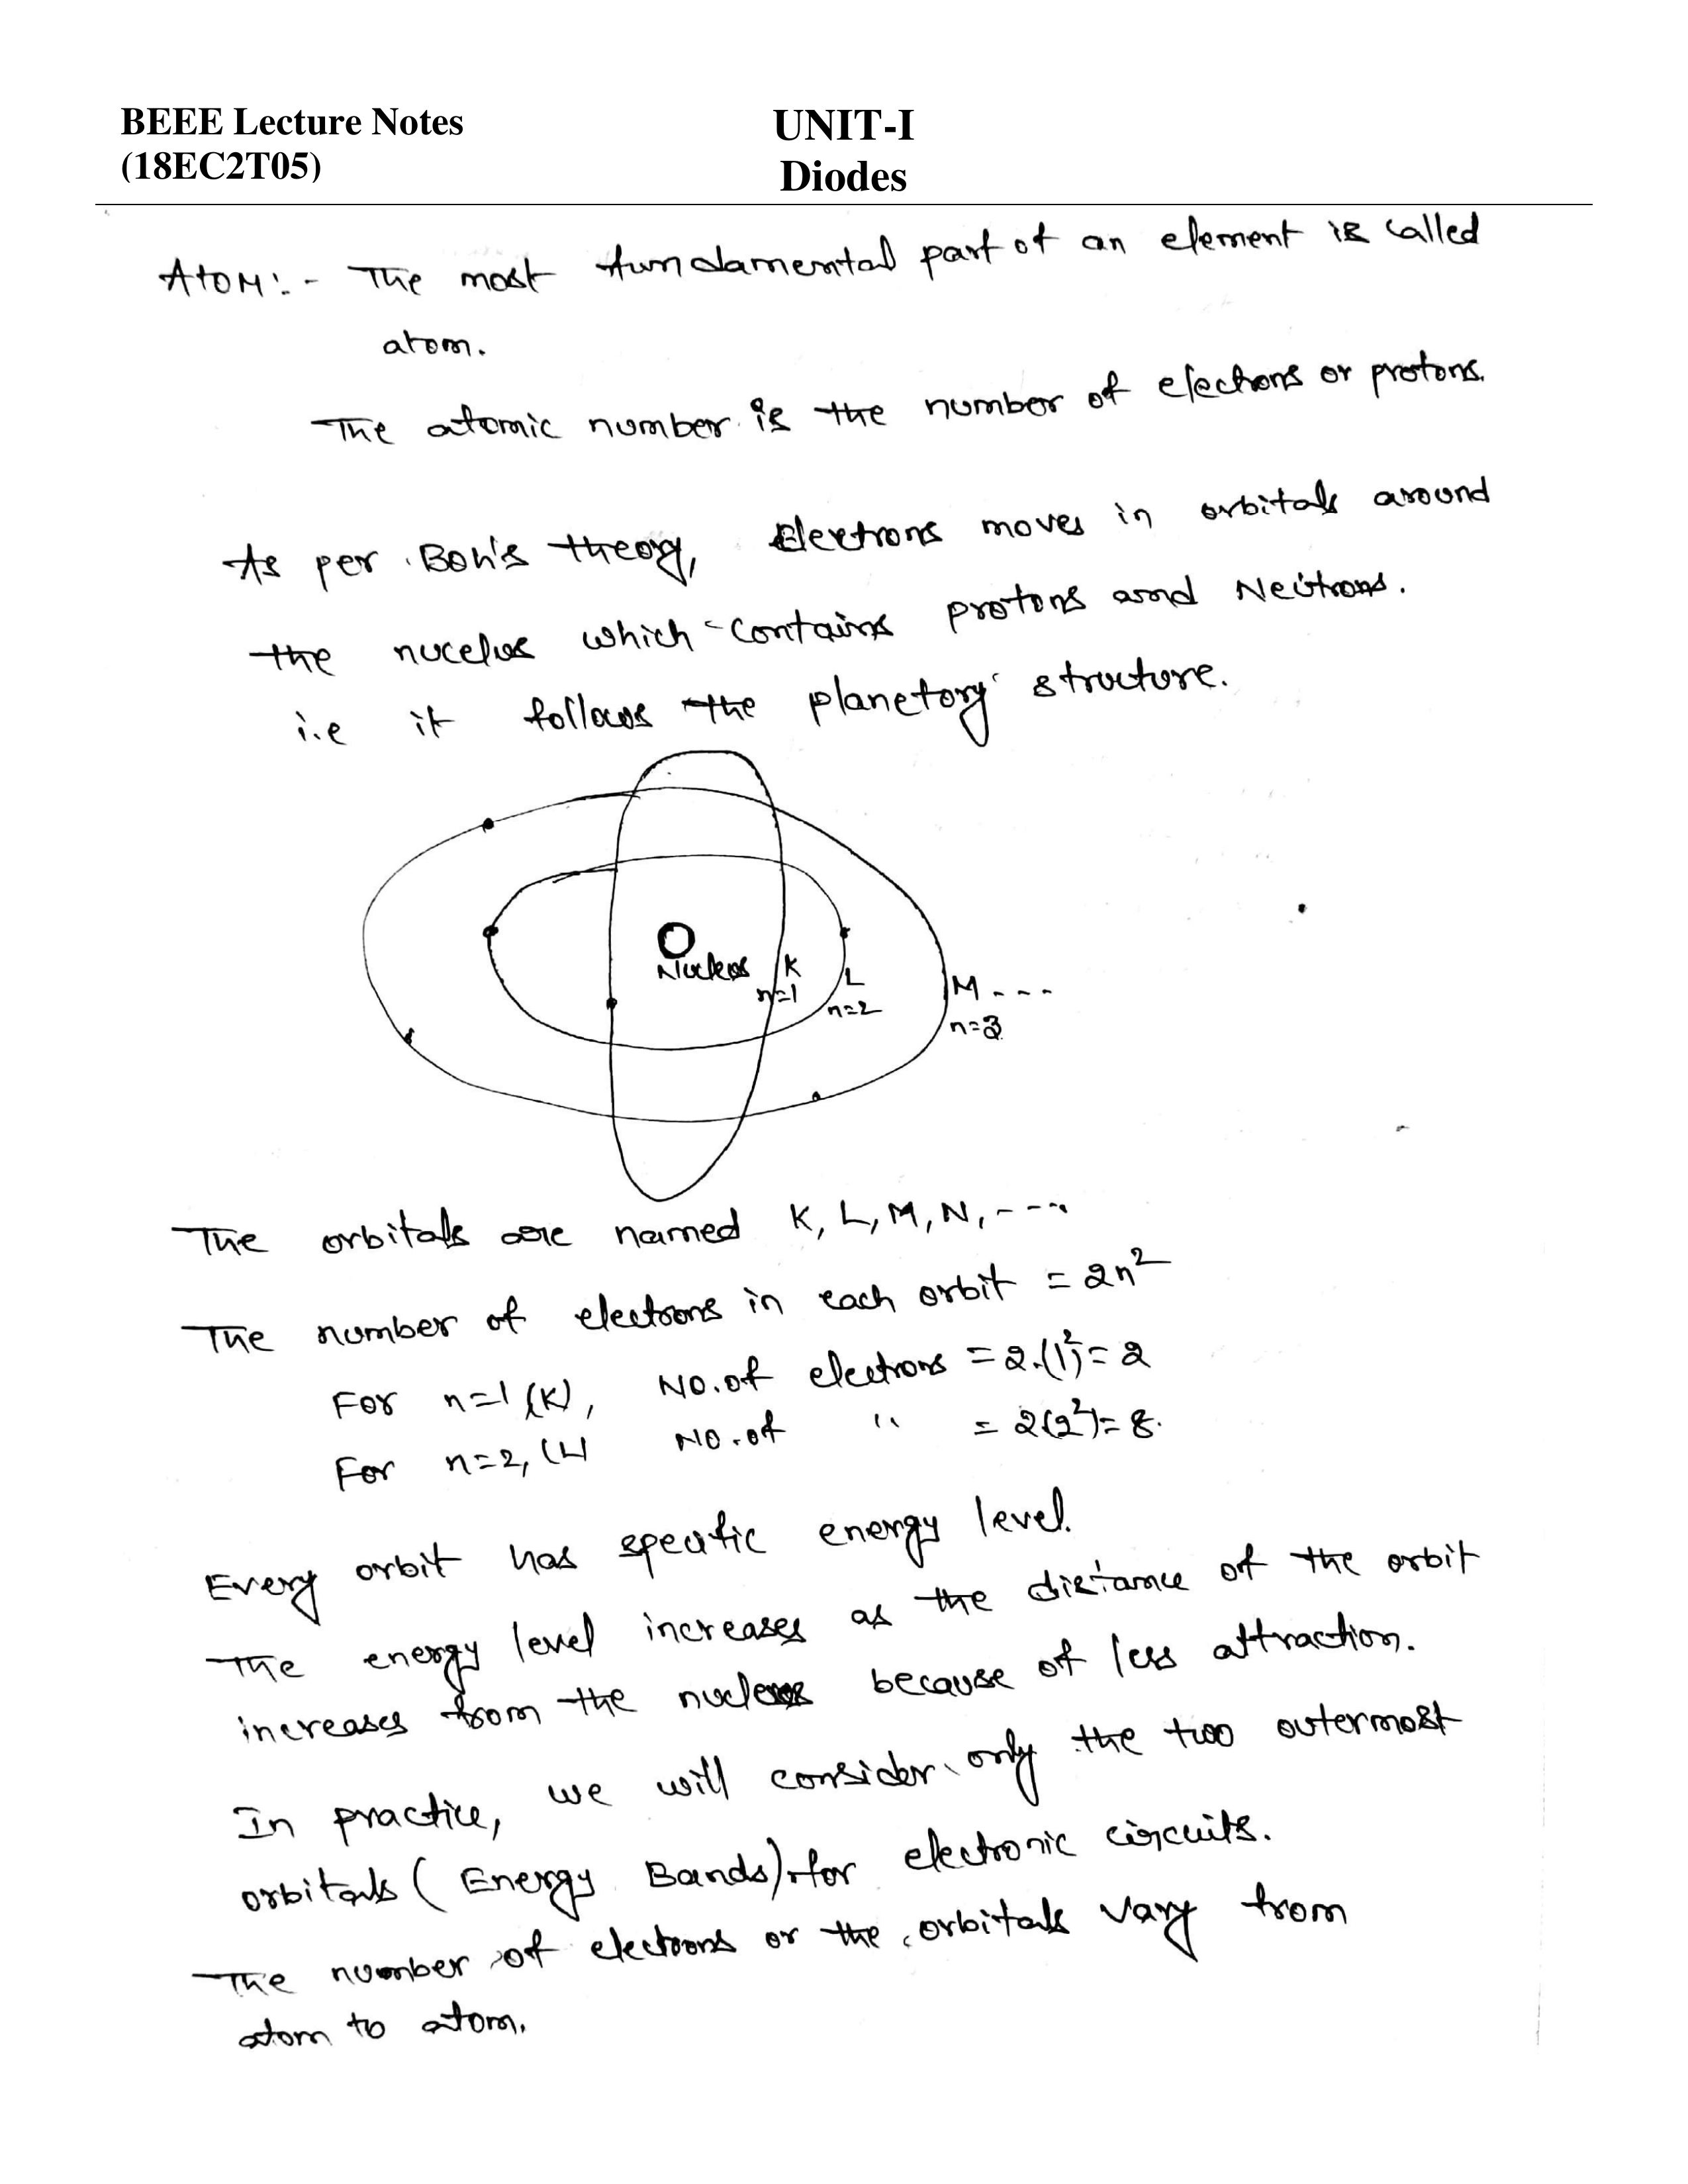 BEEE Lecture Notes
(18EC2T05)
UNIT-I
Diodes
Atom:- The most fundamental part of an element is called
atom.
The atomic number is the number of electrons or protons.
As per Boh's theory, Electrons moves in orbitals around
the nucelus which contains protons and Neutrons.
i.e it follows the planetory structure.
Nucleus K
n=1
L
n=2
M - - -
n=3
The orbitals are named K, L, M, N, - - -
The number of electrons in each orbit = 2n²
For n=1 (K), No. of electrons = 2.(1²) = 2
For n=2, (L) No. of " = 2(2²) = 8.
Every orbit has specific energy level.
The energy level increases as the distance of the orbit
increases from the nucleus because of less attraction.
In practice, we will consider only the two outermost
orbitals (Energy Bands) for electronic circuits.
The number of electrons or the orbitals vary from
atom to atom.